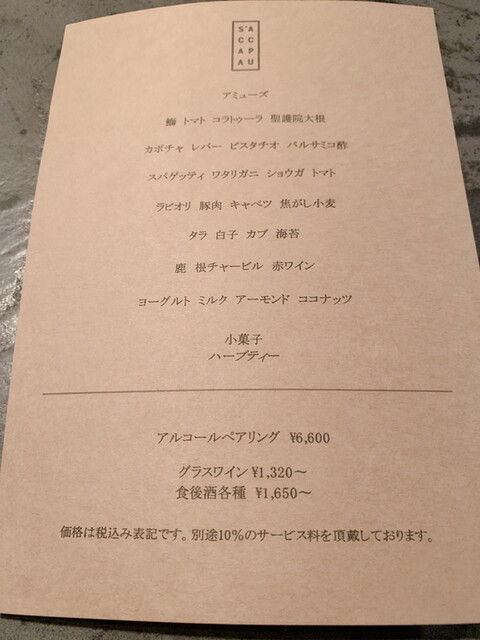 S'ACCAPAU
アミューズ
鰤 トマト コラトゥーラ 聖護院大根
カボチャ レバー ピスタチオ バルサミコ酢
スパゲッティ ワタリガニ ショウガ トマト
ラビオリ 豚肉 キャベツ 焦がし小麦
タラ 白子 カブ 海苔
鹿 根チャービル 赤ワイン
ヨーグルト ミルク アーモンド ココナッツ
小菓子
ハーブティー
アルコールペアリング ¥6,600
グラスワイン ¥1,320～
食後酒各種 ¥1,650～
価格は税込み表記です。別途10%のサービス料を頂戴しております。